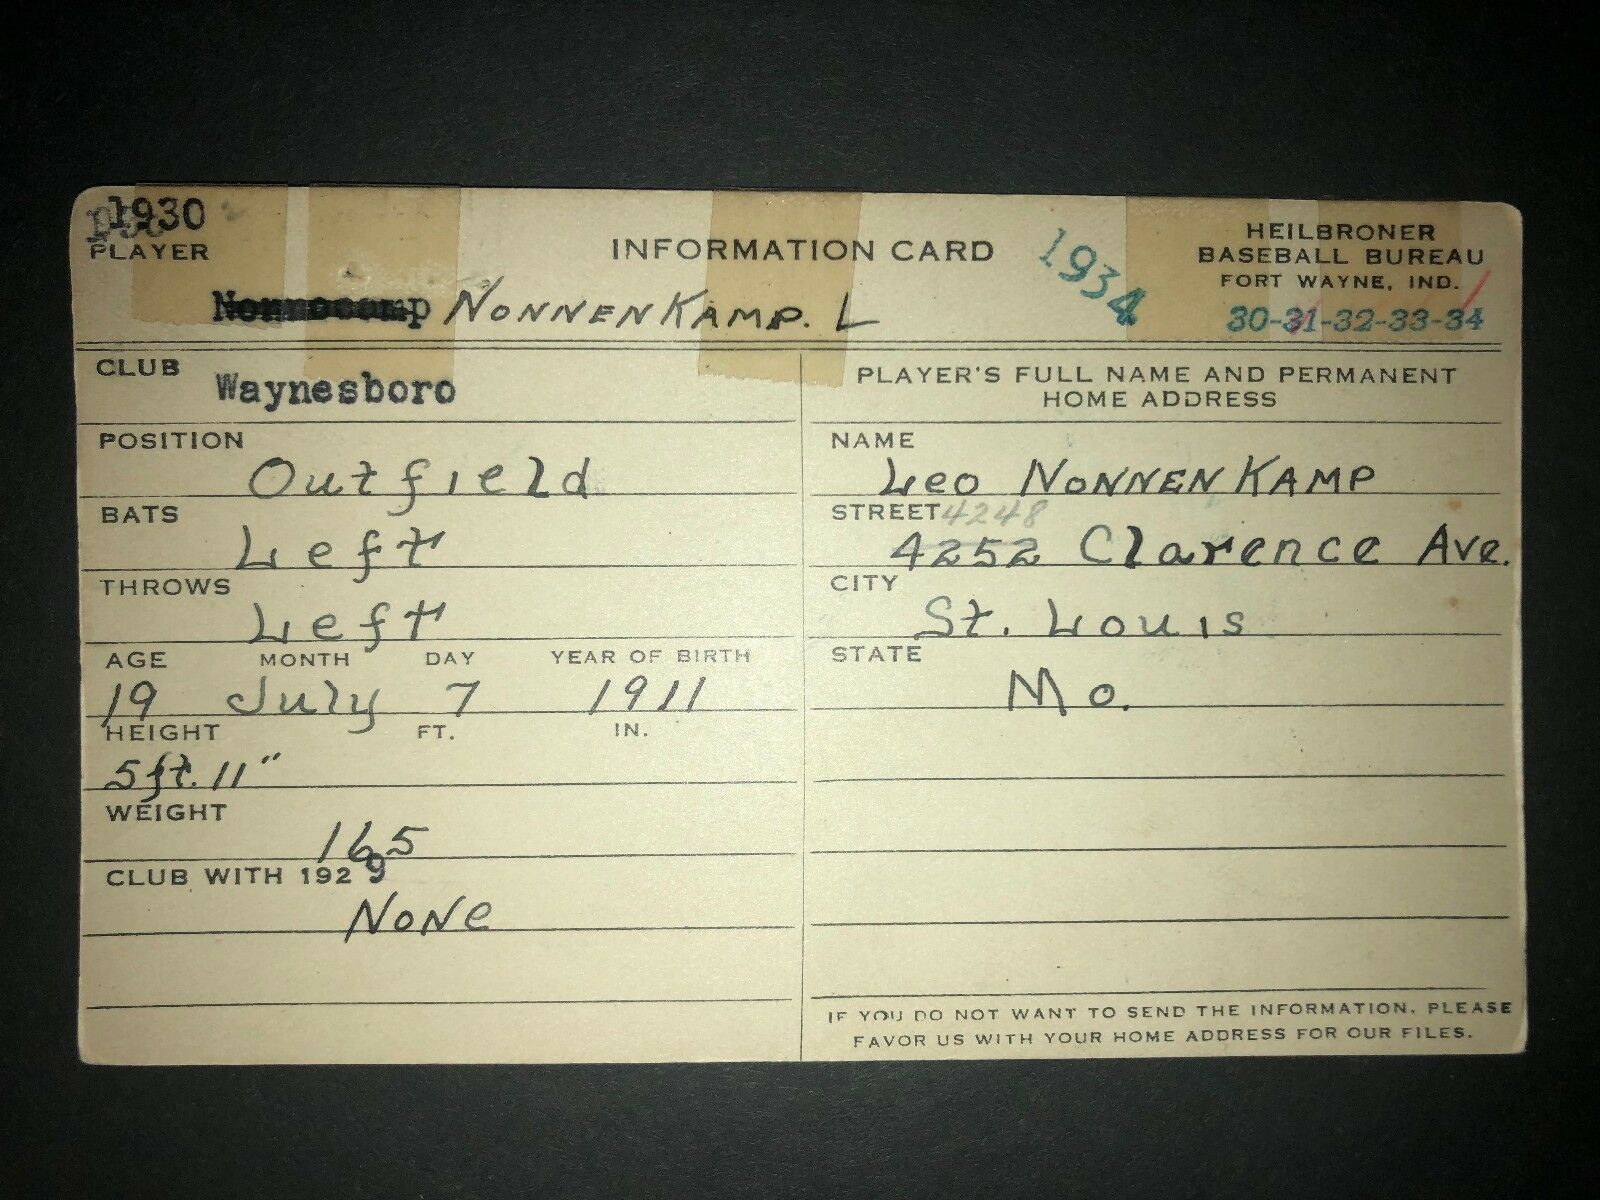 1930
PLAYER
INFORMATION CARD
1934
HEILBRONER
BASEBALL BUREAU
FORT WAYNE, IND.
30-31-32-33-34
NONNENKAMP. L
CLUB
Waynesboro
POSITION
Outfield
BATS
Left
THROWS
Left
AGE MONTH DAY YEAR OF BIRTH
19 July 7 1911
HEIGHT FT. IN.
5ft. 11"
WEIGHT
165
CLUB WITH 1929
NONe
PLAYER'S FULL NAME AND PERMANENT
HOME ADDRESS
NAME
Leo NONNENKAMP
STREET 4248
4252 Clarence Ave.
CITY
St. Louis
STATE
Mo.
IF YOU DO NOT WANT TO SEND THE INFORMATION, PLEASE
FAVOR US WITH YOUR HOME ADDRESS FOR OUR FILES.